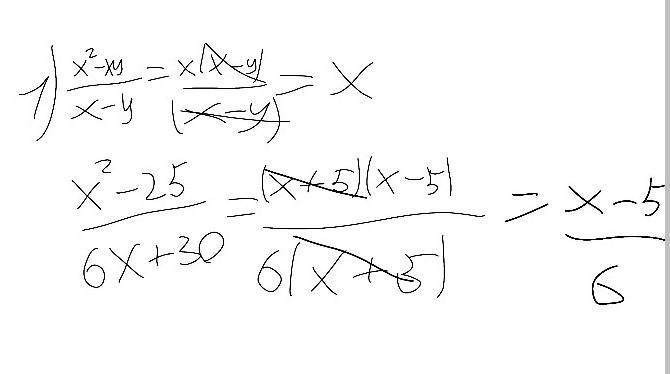 1) (x²-xy)/(x-y) = x(x-y)/(x-y) = x
(x²-25)/(6x+30) = (x+5)(x-5)/6(x+5) = (x-5)/6